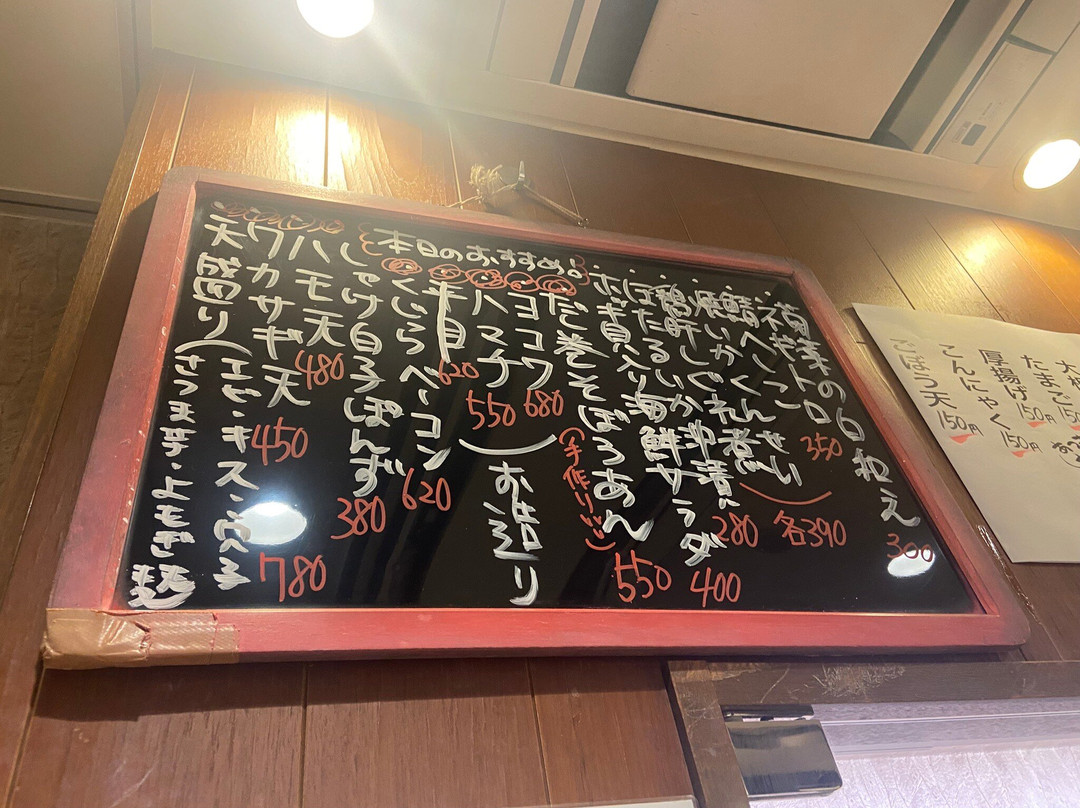 本日のおすすめ!
菊菜の白和え 300
ネギトロ 350
鯖へしこ
くんせい 各390
焼いか
鶏肝しぐれ煮 280
ほたるいか沖漬け
海鮮サラダ 400
だし巻そぼろあん (手作り) 550
ヨコワ 680
ハマチ 550
お造り
620
くじらベーコン 620
しゃけ白子ぽんず 380
ハモ天 480
ワカサギ天 450
天盛り(エビ・キス・穴子 780
さつま芋・よもぎ麩
たまご 150円
厚揚げ 150円
こんにゃく 150円
ごぼう天 150円